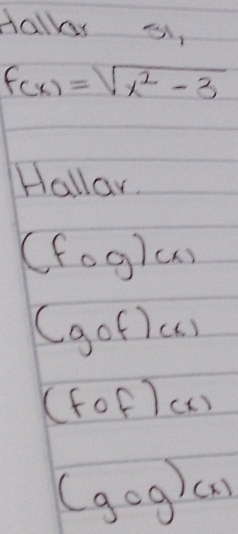 Hallar si,
f(x) = √x² - 3
Hallar.
(f o g)(x)
(g o f)(x)
(f o f)(x)
(g o g)(x)